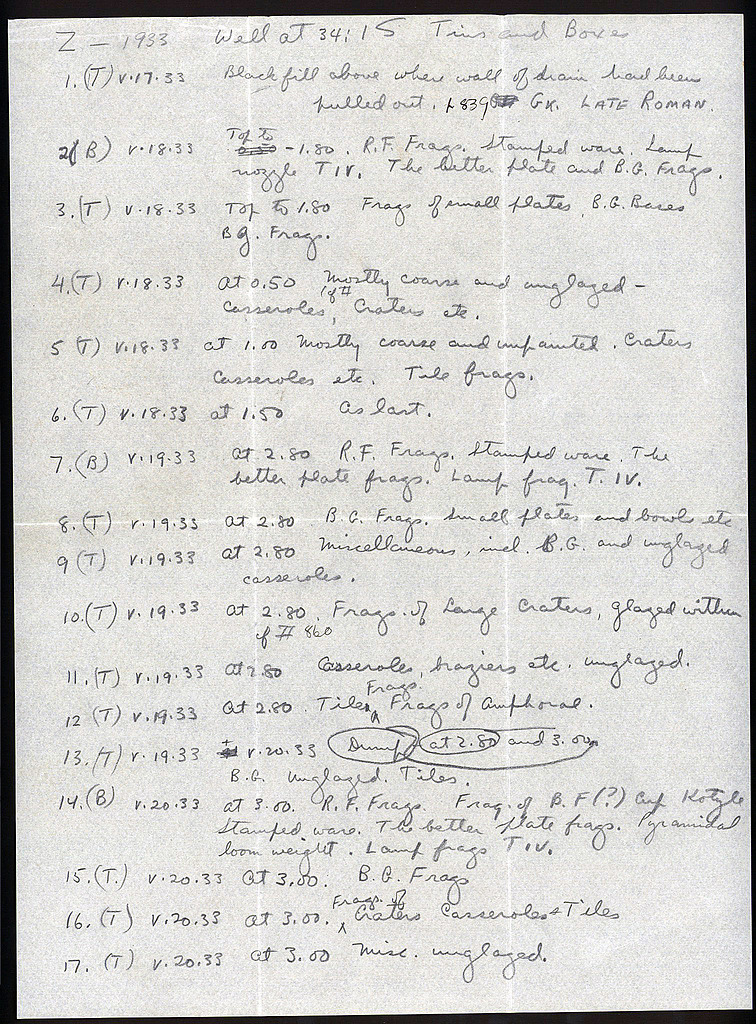 Z - 1933 Well at 34:15 Tins and Boxes
1. (T) V.17.33 Black fill above where wall of drain had been
pulled out. GK. LATE ROMAN.
2 (B) V.18.33 Top to -1.80. R.F. Frags. Stamped ware. Lamp
nozzle T IV. The better plate and B.G. Frags.
3. (T) V.18.33 Top to 1.80 Frags of small plates, B.G. Bases
BG. Frags.
4. (T) V.18.33 at 0.50 Mostly coarse and unglazed -
Casseroles, Craters etc.
5 (T) V.18.33 at 1.00 Mostly coarse and unpainted. Craters
Casseroles etc. Tile frags.
6. (T) V.18.33 at 1.50 as last.
7. (B) V.19.33 at 2.80 R.F. Frags. Stamped ware. The
better plate frags. Lamp frag. T. IV.
8. (T) V.19.33 at 2.80 B.G. Frags. Small plates and bowls etc
9 (T) V.19.33 at 2.80 Miscellaneous, incl. B.G. and unglazed
casseroles.
10. (T) V.19.33 at 2.80. Frags. of Large Craters, glazed within
of # 860
11. (T) V.19.33 at 2.80 Casseroles, braziers etc. unglazed.
12 (T) V.19.33 at 2.80. Tile Frags. Frags of Amphorae.
13. (T) V.19.33 + V.20.33 Dump at 2.80 and 3.00
B.G. Unglazed. Tiles.
14. (B) V.20.33 at 3.00. R.F. Frags. Frag. of B.F (?) Cup Kotyle
Stamped ware. The better plate frags. Pyramidal
loom weight. Lamp frags T IV.
15. (T.) V.20.33 at 3.00. B.G. Frags
16. (T) V.20.33 at 3.00. Frags. of Craters Casseroles + Tiles
17. (T) V.20.33 at 3.00 Misc. unglazed.